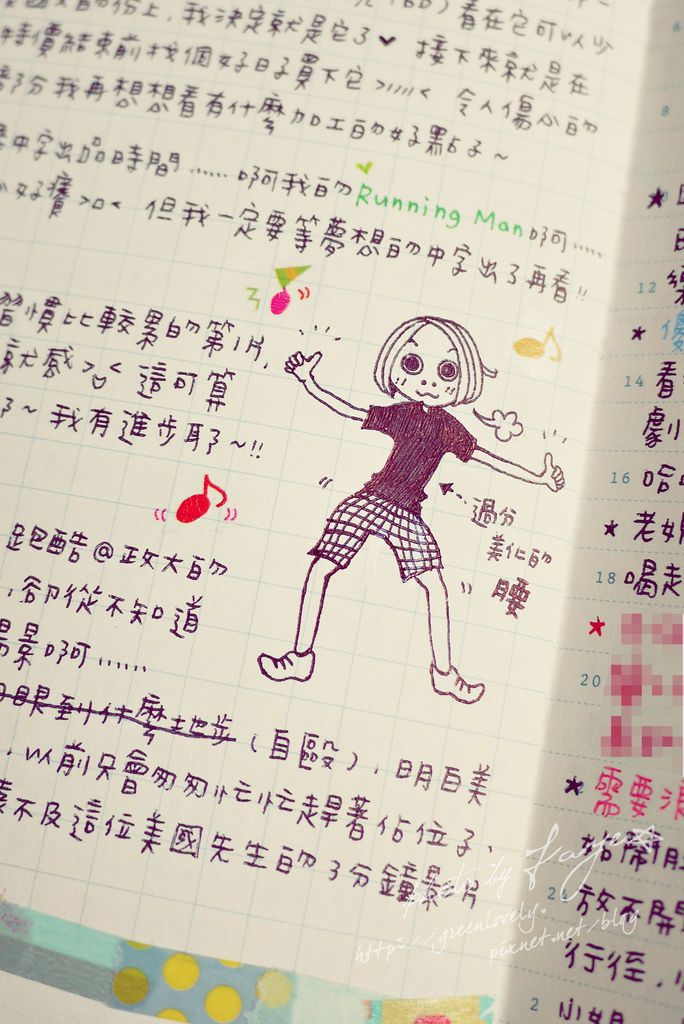 我決定就是它了♥ 接下來就是在
特價結束前找個好日子買下它>////< 令人傷心的
部分我再想想看有什麼加工的好點子~
中字出品時間...... 啊我的Running Man啊.....
好癢>□< 但我一定要等夢想的中字出了再看!!
習慣比較累的第1片,
就感>▽< 這可算
了~ 我有進步耶了~!!
過分
美化的
腰
跑酷@政大的
,卻從不知道
場景啊......
到什麼地步(自毆), 明白美
,以前只會匆匆忙忙趕著佔位子、
不及這位美國先生的3分鐘影片
12
14
看
劇
16
哈
★老
18
喝
20
★需要
放
行徑,
2
photo by Faye
http://greenlovely.
pixnet.net/blog